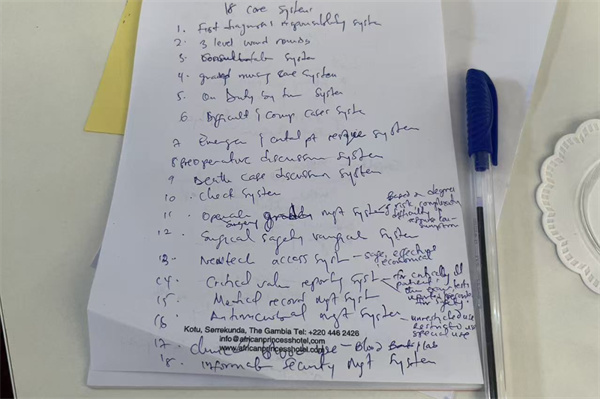 18 Core Systems
1. First diagnosis responsibility system
2. 3 level ward rounds
3. Consultation system
4. graded nursing care system
5. On Duty by turn System
6. Difficult & comp cases Syste
7 Emergen & critical pt system
8 Preoperative discussion system
9 Death Case discussion System
10. Check System
11. Operatn grading mgt System
surgery
Based on degree
risk complexity
difficulty &
12. Surgical Safety System
13. New tech access syst - safe, effective
economical
14. Critical value reporting Syst - for critically ill
patients
15. Medical record mgt Syst
16 Antimicrobial mgt System - unrestricted use
Restricted use
special use
Kotu, Serrekunda, The Gambia Tel: +220 446 2426
info@africanprincesshotel.com
www.africanprincesshotel.com
17. Clinical use - Blood Bank/lab
18. Information Security Mgt System